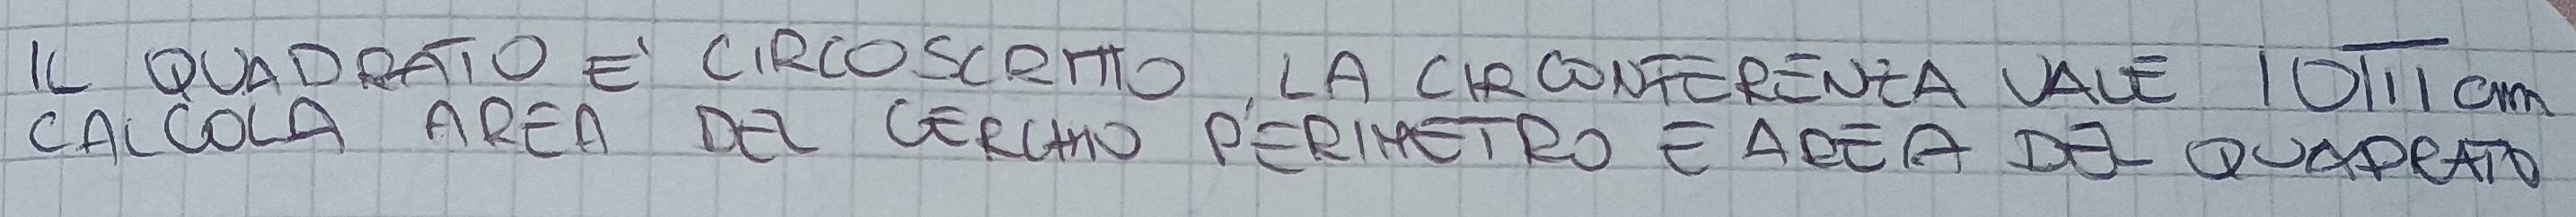 IL QUADRATO E' CIRCOSCRITTO, LA CIRCONFERENZA VALE 10π cm
CALCOLA AREA DEL CERCHIO PERIMETRO E AREA DEL QUADRATO